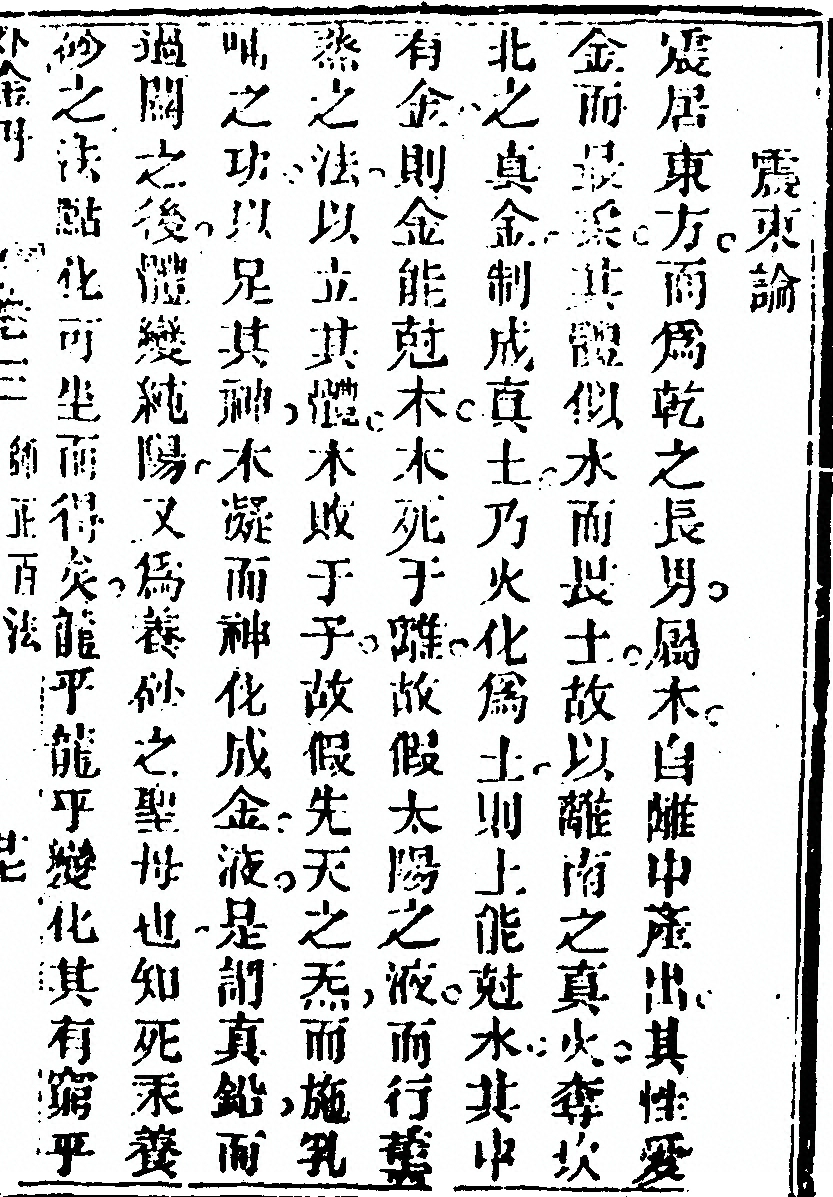 震東論
震居東方而爲乾之長男屬木自離中產出其性愛
金而最柔其體似水而畏土故以離南之真火奪坎
北之真金制成真土乃火化爲土則土能尅水其中
有金則金能尅木木死于離故假太陽之液而行薰
蒸之法以立其體木敗于子故假先天之炁而施乳
哺之功以足其神木凝而神化成金液是謂真鉛而
過關之後體變純陽又爲養砂之聖母也知死汞養
砂之法點化可坐而得矣龍乎龍乎變化其有窮乎
外金丹 卷二 師正百法